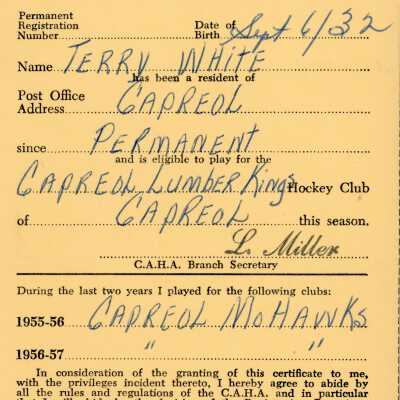 Permanent
Registration
Number
Date of
Birth Sept 6/32
Name TERRY WHITE
has been a resident of
Post Office
Address CAPREOL
since PERMANENT
and is eligible to play for the
CAPREOL LUMBER KINGS Hockey Club
of CAPREOL this season.
L. Miller
C.A.H.A. Branch Secretary
During the last two years I played for the following clubs:
1955-56 CAPREOL MOHAWKS
1956-57 " "
In consideration of the granting of this certificate to me,
with the privileges incident thereto, I hereby agree to abide by
all the rules and regulations of the C.A.H.A. and in particular